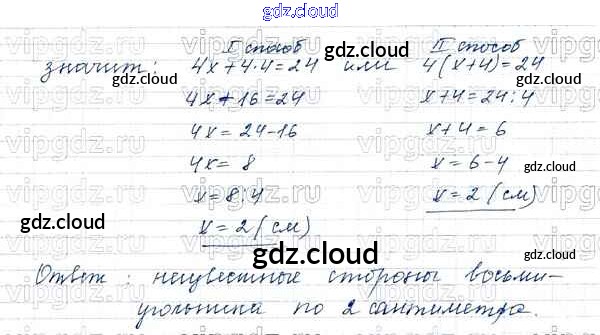 gdz.cloud
I способ II способ
значит: 4x+4·4=24 или 4(x+4)=24
4x+16=24 x+4=24:4
4x=24-16 x+4=6
4x=8 x=6-4
x=8:4 x=2(см)
x=2(см)
Ответ: неизвестные стороны восьми-
угольника по 2 сантиметра.
gdz.cloud
gdz.cloud
gdz.cloud
gdz.cloud
gdz.cloud
gdz.cloud
gdz.cloud
gdz.cloud
vipgdz.ru
vipgdz.ru
vipgdz.ru